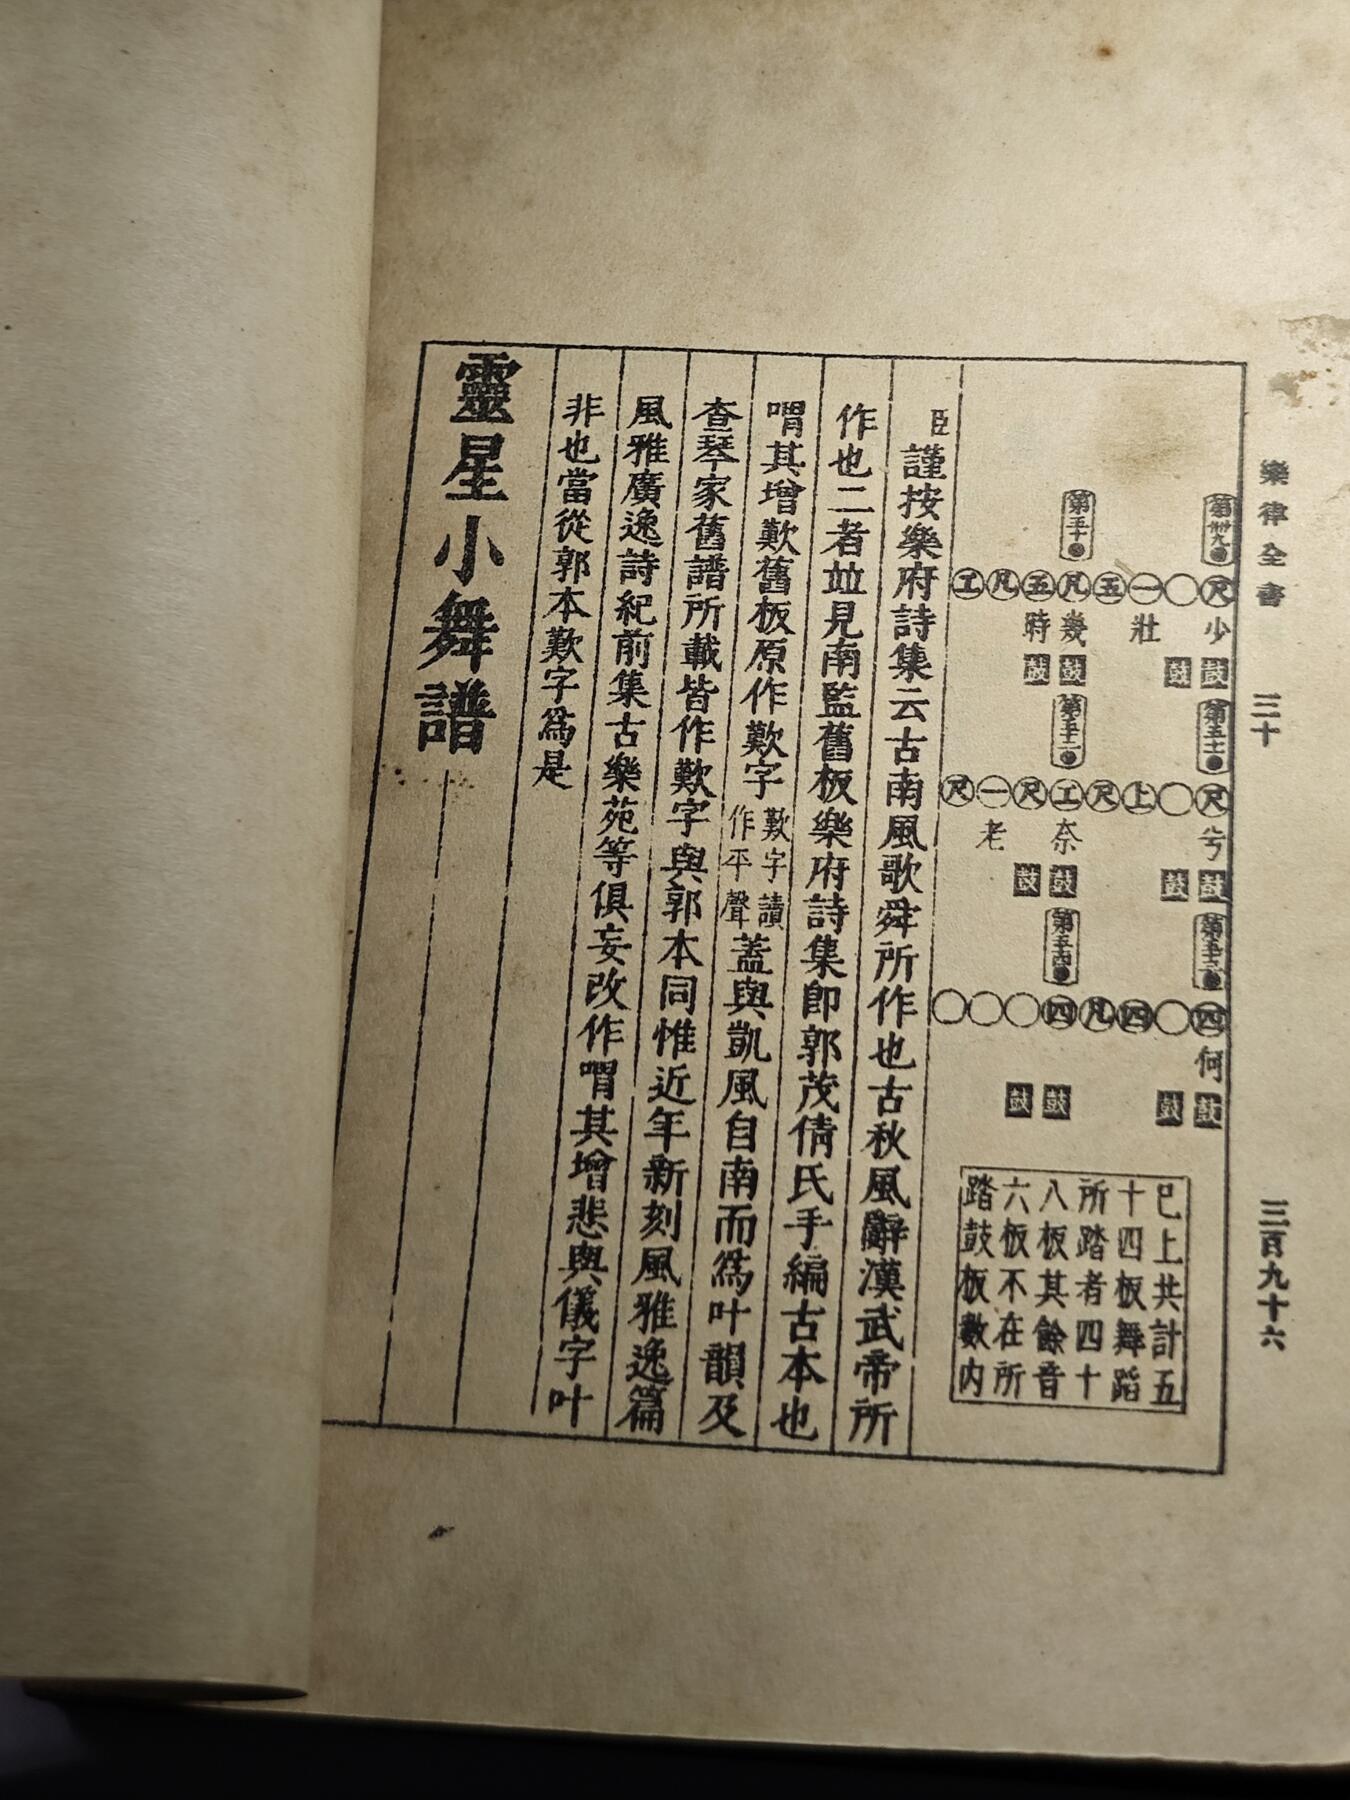 樂律全書 三十 三百九十六
第卌九 尺 少 鼓 第五十一 尺 兮 鼓 第五十三 四 何 鼓
○ 鼓 ○ 鼓 ○ 鼓
一 壯 上 四
五 尺 凡
第五十 凡 幾 鼓 第五十二 工 奈 鼓 第五十四 四 鼓
五 時 鼓 尺 鼓 ○ 鼓
凡 一 老 ○
工 尺 ○
已上共計五
十四板舞蹈
所踏者四十
八板其餘音
六板不在所
踏鼓板數内
臣謹按樂府詩集云古南風歌舜所作也古秋風辭漢武帝所
作也二者並見南監舊板樂府詩集卽郭茂倩氏手編古本也
喟其增歎舊板原作歎字歎字讀作平聲蓋與凱風自南而爲叶韻及
查琴家舊譜所載皆作歎字與郭本同惟近年新刻風雅逸篇
風雅廣逸詩紀前集古樂苑等俱妄改作喟其增悲與儀字叶
非也當從郭本歎字爲是
靈星小舞譜